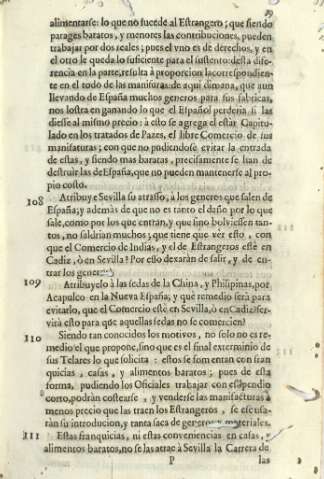 59
alimentarse: lo que no sucede al Estrangero; que siendo
parages baratos, y menores las contribuciones, pueden
trabajar por dos reales; pues el vno es de derechos, y en
el otro le queda lo suficiente para el sustento: desta dife-
rencia en la parte, resulta à proporcion la correspondien-
te en el todo de las manifuras: de aqui dimana, que aun
llevando de España muchos generos para sus fabricas,
nos lostra en ganando lo que el Español perderia si las
diesse al mismo precio: à esto se agrega el estàr Capitu-
lado en los tratados de Pazes, el libre Comercio de sus
manifaturas; con que no pudiendose evitar la entrada
de estas, y siendo mas baratas, precisamente se han de
destruir las de España, que no pueden mantenerse al pro-
pio costo.
108 Atribuye Sevilla su atrasso, à los generos que salen de
España; y ademàs de que no es tanto el daño por lo que
sale, como por los que entran, y que sino bolviessen tan-
tos, no saldrian muchos; que tiene que vèr esto, con
que el Comercio de Indias, y el de Estrangeros estè en
Cadiz, ò en Sevilla? Por esso dexaràn de salir, y de en-
trar los generos?
109 Atribuyelo à las sedas de la China, y Philipinas, por
Acapulco en la Nueva España, y què remedio serà para
evitarlo, que el Comercio estè en Sevilla, ò en Cadiz? ser-
virà esto para que aquellas sedas no se comercien?
110 Siendo tan conocidos los motivos, no solo no es re-
medio el que propone, sino que es el final exterminio de
sus Telares lo que solicita: estos se fomentan con fran
quicias, casas, y alimentos baratos; pues de esta
forma, pudiendo los Oficiales trabajar con estipendio
corto, podràn costearse, y venderse las manifacturas à
menos precio que las traen los Estrangeros, se escusa-
ràn su introducion, y tanta saca de generos y materiales.
111 Estas franquicias, ni estas conveniencias en casas, y
alimentos baratos, no se las atrae à Sevilla la Carrera de
P las